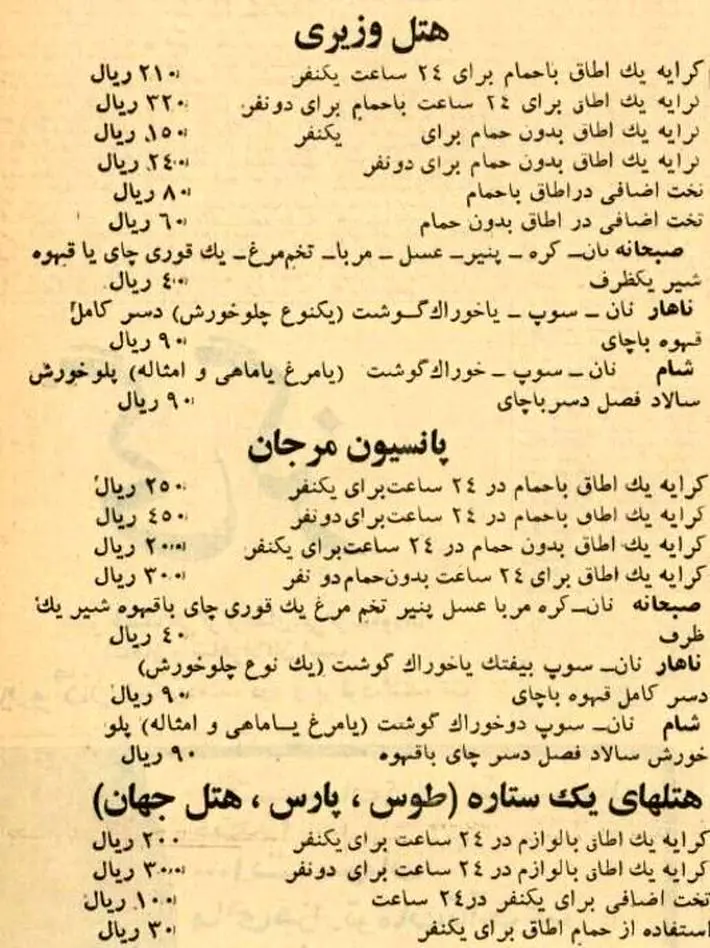 هتل وزیری
کرایه یك اطاق باحمام برای ۲٤ ساعت یکنفر ۲۱۰ ریال
کرایه یك اطاق برای ۲٤ ساعت باحمام برای دونفر ۳۲۰ ریال
کرایه یك اطاق بدون حمام برای یکنفر ۱۵۰ ریال
کرایه یك اطاق بدون حمام برای دونفر ۲٤۰ ریال
تخت اضافی دراطاق باحمام ۸۰ ریال
تخت اضافی در اطاق بدون حمام ٦۰ ریال
صبحانه نان ـ کره ـ پنیر ـ عسل ـ مربا ـ تخم‌مرغ ـ یك قوری چای یا قهوه
شیر یکظرف ٤۰ ریال
ناهار نان ـ سوپ ـ یاخوراك گوشت (یکنوع چلوخورش) دسر کامل
قهوه باچای ۹۰ ریال
شام نان ـ سوپ ـ خوراك گوشت (یامرغ یاماهی و امثاله) پلوخورش
سالاد فصل دسر باچای ۹۰ ریال
پانسیون مرجان
کرایه یك اطاق باحمام در ۲٤ ساعت برای یکنفر ۲۵۰ ریال
کرایه یك اطاق باحمام در ۲٤ ساعت برای دونفر ٤۵۰ ریال
کرایه یك اطاق بدون حمام در ۲٤ ساعت برای یکنفر ۲۰۰ ریال
کرایه یك اطاق برای ۲٤ ساعت بدون حمام دو نفر ۳۰۰ ریال
صبحانه نان ـ کره مربا عسل پنیر تخم مرغ یك قوری چای باقهوه شیر یك
ظرف ٤۰ ریال
ناهار نان ـ سوپ بیفتك یاخوراك گوشت (یك نوع چلوخورش)
دسر کامل قهوه باچای ۹۰ ریال
شام نان ـ سوپ دوخوراك گوشت (یامرغ یاماهی و امثاله) پلو
خورش سالاد فصل دسر چای باقهوه ۹۰ ریال
هتلهای یك ستاره (طوس ، پارس ، هتل جهان)
کرایه یك اطاق بالوازم در ۲٤ ساعت برای یکنفر ۲۰۰ ریال
کرایه یك اطاق بالوازم در ۲٤ ساعت برای دونفر ۳۰۰ ریال
تخت اضافی برای یکنفر در۲٤ ساعت ۱۰۰ ریال
استفاده از حمام اطاق برای یکنفر ۳۰ ریال